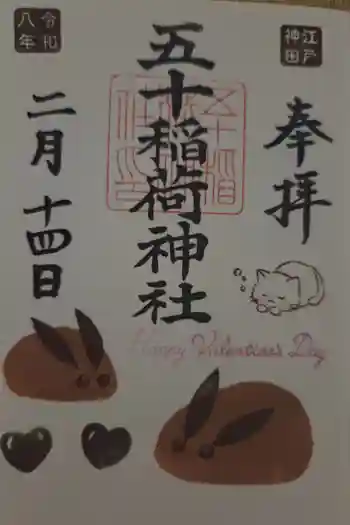 江戸
神田
奉拝
五十稲荷神社
令和
八年
二月十四日
Happy Valentine's Day